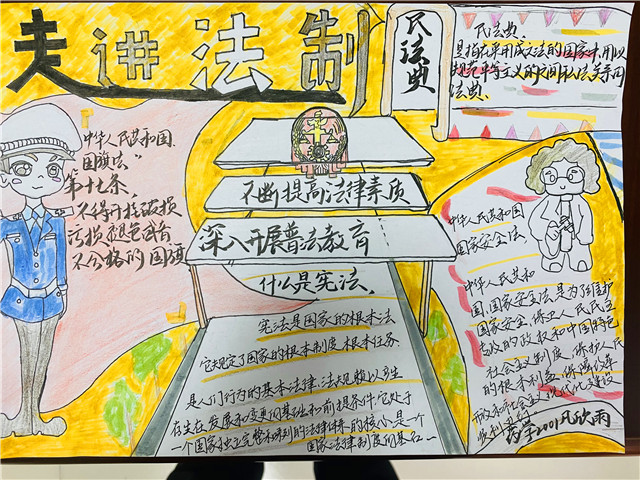 走讲法制
民法典
民法典.
是指在采用成文法的国家中,用以
规范平等主义的民间私法关系的
法典.
中华人民共和国
国旗法"
第十七条,
不得升挂破损
污损、褪色或者
不合格的国旗
不断提高法律素质
深入开展普法教育
什么是宪法、
宪法是国家的根本法
它规定了国家的根本制度、根本任务
是人们行为的基本法律
存在发展和变更的基础和前提条件,它处于
一个国家独立完整和
的法律体系的核心,是一个
国家法律制度的基石一
中华人民共和国
国家安全法、
中华人民共和
国国家安全法是为了维护
国家安全,保卫人民民主
专政的政权和中国特色
社会主义制度,保护人民
的根本利益,保障改革
和社会主义现代化建设
药学2001